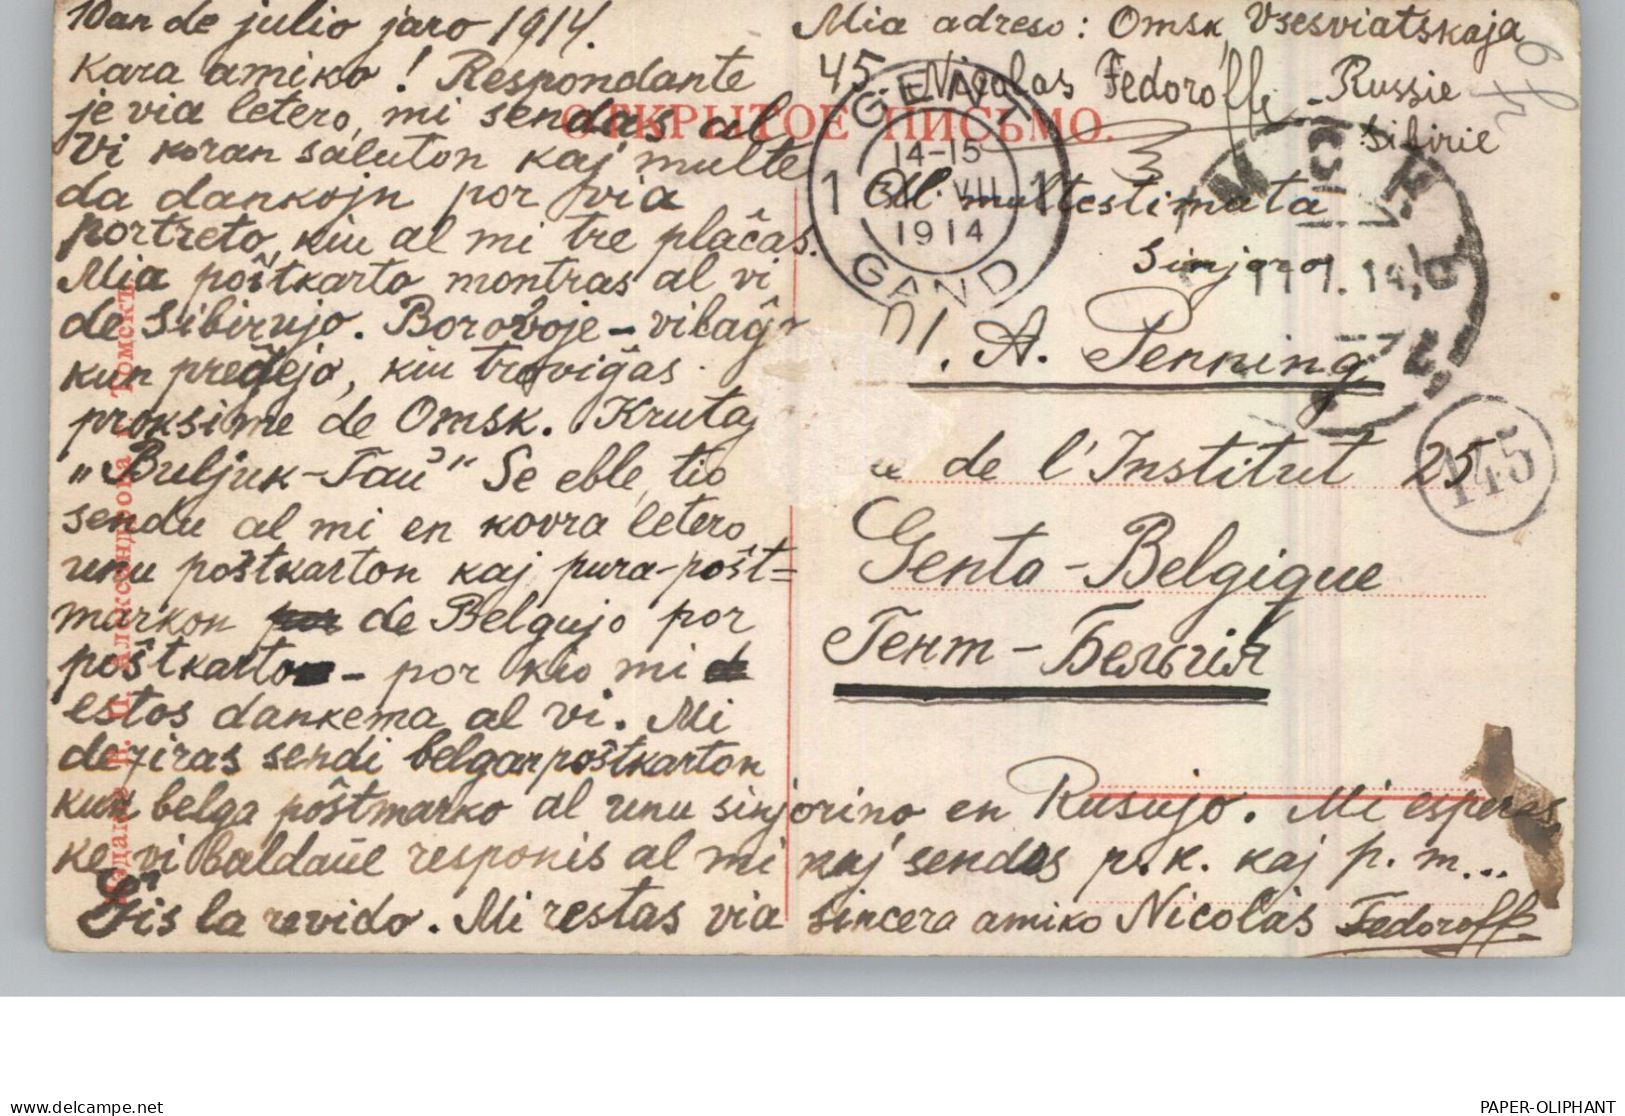 10an de julio jaro 1914.
Kara amiko! Respondante
je via letero, mi sendas al
Vi koran saluton kaj multe
da dankojn por via
portreto, kiu al mi tre plaĉas.
Mia poŝtkarto montras al vi
de Sibirujo. Borovoje – vilaĝo
kun preĝejo, kiu troviĝas
proksime de Omsk. Krutaj
„Buljuk-Taŭ" Se eble, tio
sendu al mi en kovra letero
unu poŝtkarton kaj pura-poŝt=
markon de Belgujo por
poŝtkarto – por kio mi
estos dankema al vi. Mi
deziras sendi belgan poŝtkarton
kun belga poŝtmarko al unu sinjorino en Rusujo. Mi esperas,
ke vi baldaŭe responis al mi kaj sendos p. k. kaj p. m...
Ĝis la revido. Mi restas via sincera amiko Nicolas Fedoroff
Mia adreso: Omsk, Vsesviatskaja
45. Nicolas Fedoroff. Russie
Sibirie
ОТКРЫТОЕ ПИСЬМО.
Al multestimata
Sinjoro
A. Penning
de l'Institut 25
Genta – Belgique
Гент – Бельгія
GENT
14-15
1 VII 1
1914
GAND
ОМСКЪ
11.7.14
145
Изданіе П. Александрова Томскъ
PAPER-OLIPHANT
www.delcampe.net